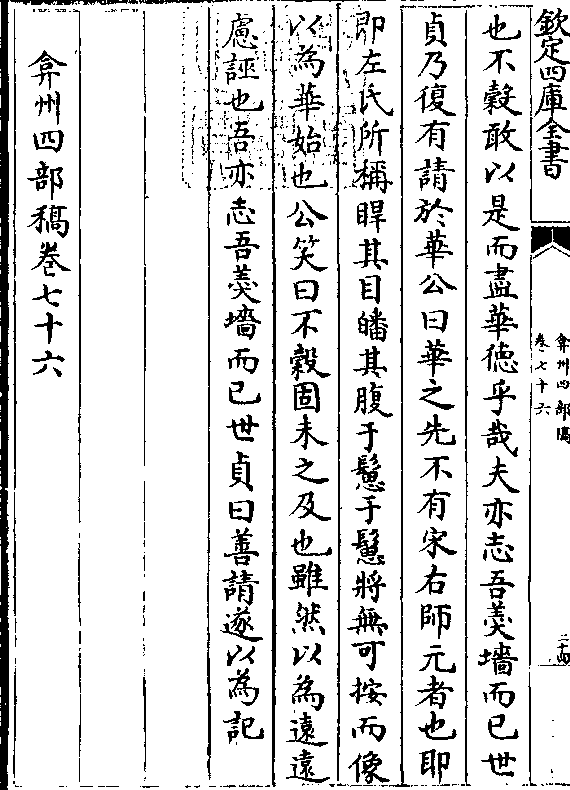 欽定四庫全書
弇州四部稿
卷七十六
二十四
也不穀敢以是而盡華徳乎哉夫亦志吾羮墻而已世
貞乃復有請於華公曰華之先不有宋右師元者也即
即左氏所稱睅其目皤其腹于鬷于鬷將無可按而像
以為華始也公笑曰不穀固未之及也雖然以為遠遠
慮誣也吾亦志吾羮墻而已世貞曰善請遂以為記
弇州四部稿卷七十六